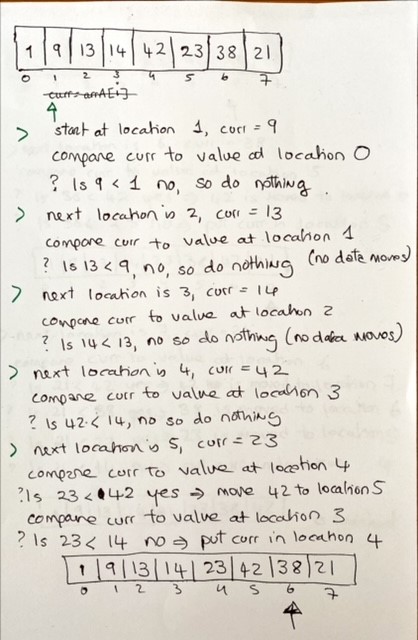 1 9 13 14 42 23 38 21
0 1 2 3 4 5 6 7
curr= arrA[i]
> start at location 1, curr = 9
compare curr to value at location 0
? Is 9 < 1 no, so do nothing.
> next location is 2, curr = 13
compare curr to value at location 1
? Is 13 < 9, no, so do nothing (no data moves)
> next location is 3, curr = 14
compare curr to value at location 2
? Is 14 < 13, no so do nothing (no data moves)
> next location is 4, curr = 42
compare curr to value at location 3
? Is 42 < 14, no so do nothing
> next location is 5, curr = 23
compare curr to value at location 4
? Is 23 < 42 yes ⇒ move 42 to location 5
compare curr to value at location 3
? Is 23 < 14 no ⇒ put curr in location 4
1 9 13 14 23 42 38 21
0 1 2 3 4 5 6 7